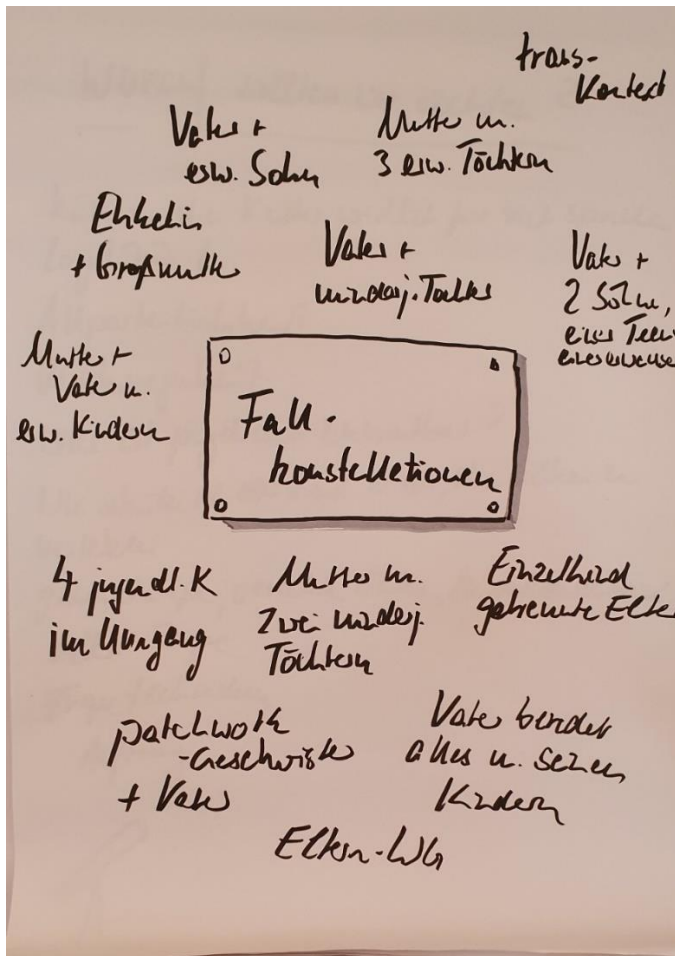 trans-
Kontext
Vater +
erw. Sohn
Mutter m.
3 erw. Töchtern
Enkelin
+ Großmutter
Vater +
minderj. Tochter
Vater +
2 Söhne,
einer Teen
einer erwachse
Mutter +
Vater m.
erw. Kindern
Fall-
konstellationen
4 jugendl. K
im Umgang
Mutter m.
zwei minderj.
Töchtern
Einzelkind
getrennte Elter
patchwork
-Geschwister
+ Vater
Vater
alles m. seinen
Kindern
Eltern-WG